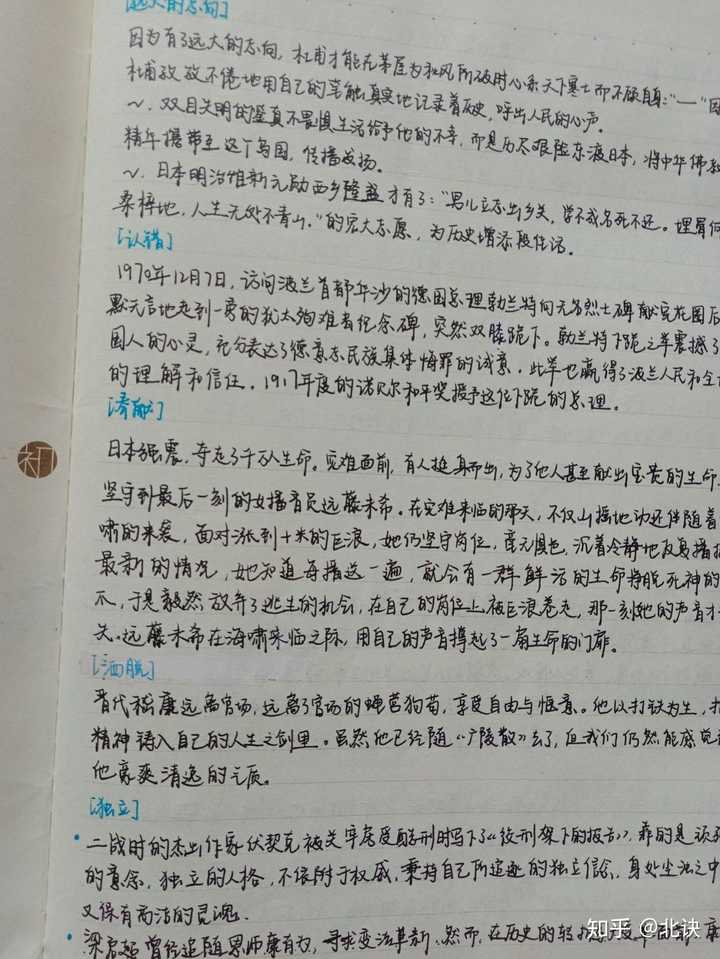 [远大的志向]
因为有了远大的志向，杜甫才能在茅屋为秋风所破时心系天下寒士而不顾自身："一"因
杜甫孜孜不倦地用自己的笔触真实地记录着历史，呼出人民的心声。
～，双目失明的鉴真不畏惧生活给予他的不幸，而是历尽艰险东渡日本，将中华佛教
精华携带至这个岛国，传播发扬。
～，日本明治维新元勋西乡隆盛才有了："男儿立志出乡关，学不成名死不还。埋骨何
桑梓地，人生无处不青山。"的宏大志愿，为历史增添段佳话。
[认错]
1970年12月7日，访问波兰首都华沙的德国总理勃兰特向无名烈士碑献完花圈后
默无言地走到一旁的犹太殉难者纪念碑，突然双膝跪下。勃兰特下跪之举震撼了
国人的心灵，充分表达了德意志民族集体悔罪的诚意。此举也赢得了波兰人民和全
的理解和信任。1917年度的诺贝尔和平奖授予这位下跪的总理。
[奉献]
日本强震，夺走了千万人生命。灾难面前，有人挺身而出，为了他人甚至献出宝贵的生命
坚守到最后一刻的女播音员远藤未希。在灾难来临的那天，不仅山摇地动还伴随着
啸的来袭，面对涨到十米的巨浪，她仍坚守岗位，毫无惧色，沉着冷静地反复播报
最新的情况，她知道每播送一遍，就会有一群鲜活的生命将脱死神的
爪，于是毅然放弃了逃生的机会，在自己的岗位上被巨浪卷走，那一刻她的声音才
失。远藤未希在海啸来临之际，用自己的声音撑起了一扇生命的门扉。
[洒脱]
晋代嵇康远离官场，远离了官场的蝇营狗苟，享受自由与惬意。他以打铁为生，把
精神铸入自己的人生之剑里。虽然他已经随《广陵散》去了，但我们仍然能感觉
他豪爽清逸的气质。
[独立]
·二战时的杰出作家伏契克被关牢房受酷刑时写下了《绞刑架下的报告》，靠的是顽强
的意念，独立的人格，不依附于权威，秉持自己所追逐的独立信念，身处尘泥之中
又保有高洁的灵魂。
·梁启超曾经追随恩师康有为，寻求变法革新，然而，在历史的转
知乎 @北诀